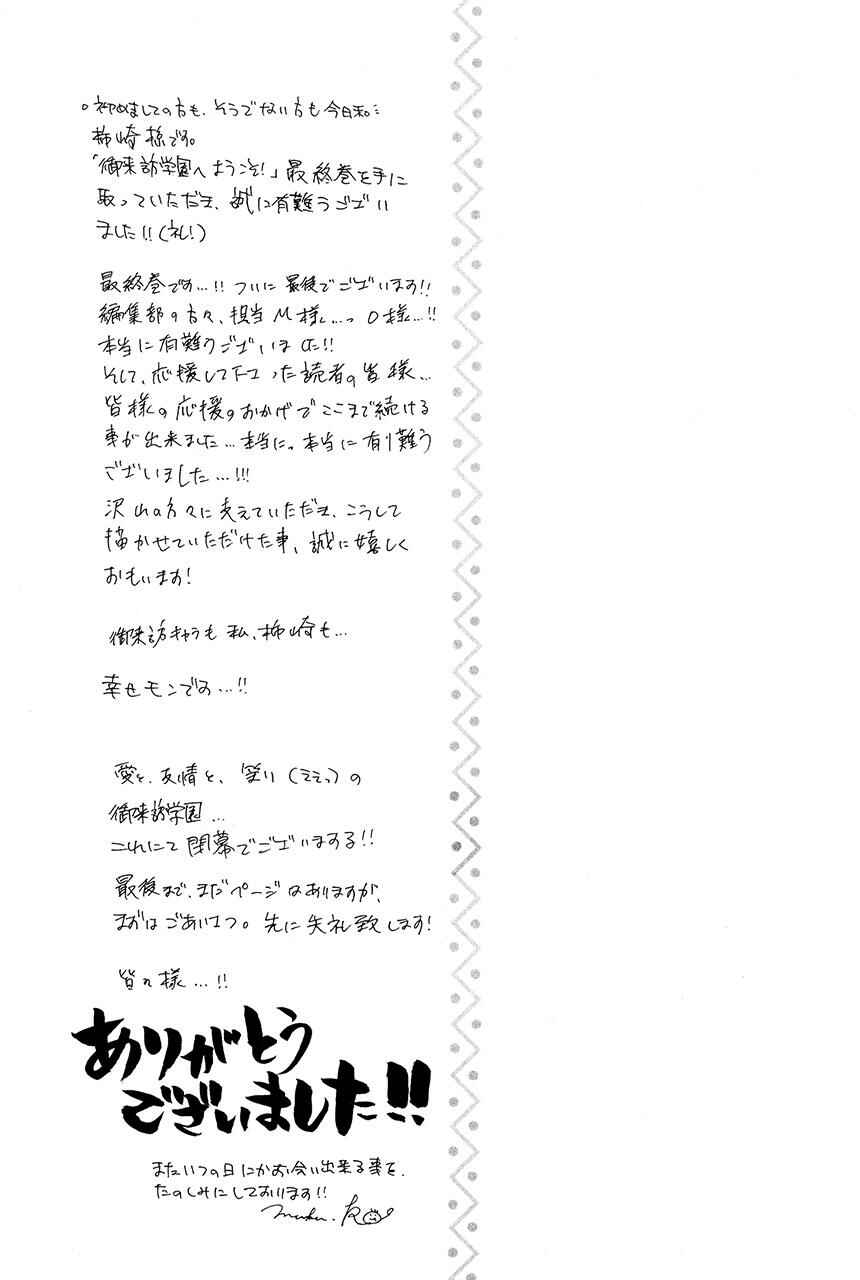 。初めましての方も、そうでない方も今日和。
柿崎様です。
「御来訪学園へようこそ！」最終巻を手に
取っていただき、誠に有難うござい
ました!!（礼！）
最終巻です…!! ついに最後でございます!!
編集部の方々、担当M様…っO様…!!
本当に有難うございました!!
そして、応援して下さった読者の皆様…
皆様の応援のおかげでここまで続ける
事が出来ました…本当に。本当に有り難う
ございました…!!!
沢山の方々に支えていただき、こうして
描かせていただけた事、誠に嬉しく
おもいます！
御来訪キャラも私、柿崎も…
幸せモンです…!!
愛と、友情と、笑い（ええっ）の
御来訪学園…
これにて閉幕でございまする!!
最後まで、まだページはありますが、
まずはごあいさつ。先に失礼致します！
皆々様…!!
ありがとう
ございました!!
またいつの日にかお会い出来る事を、
たのしみにしております!!